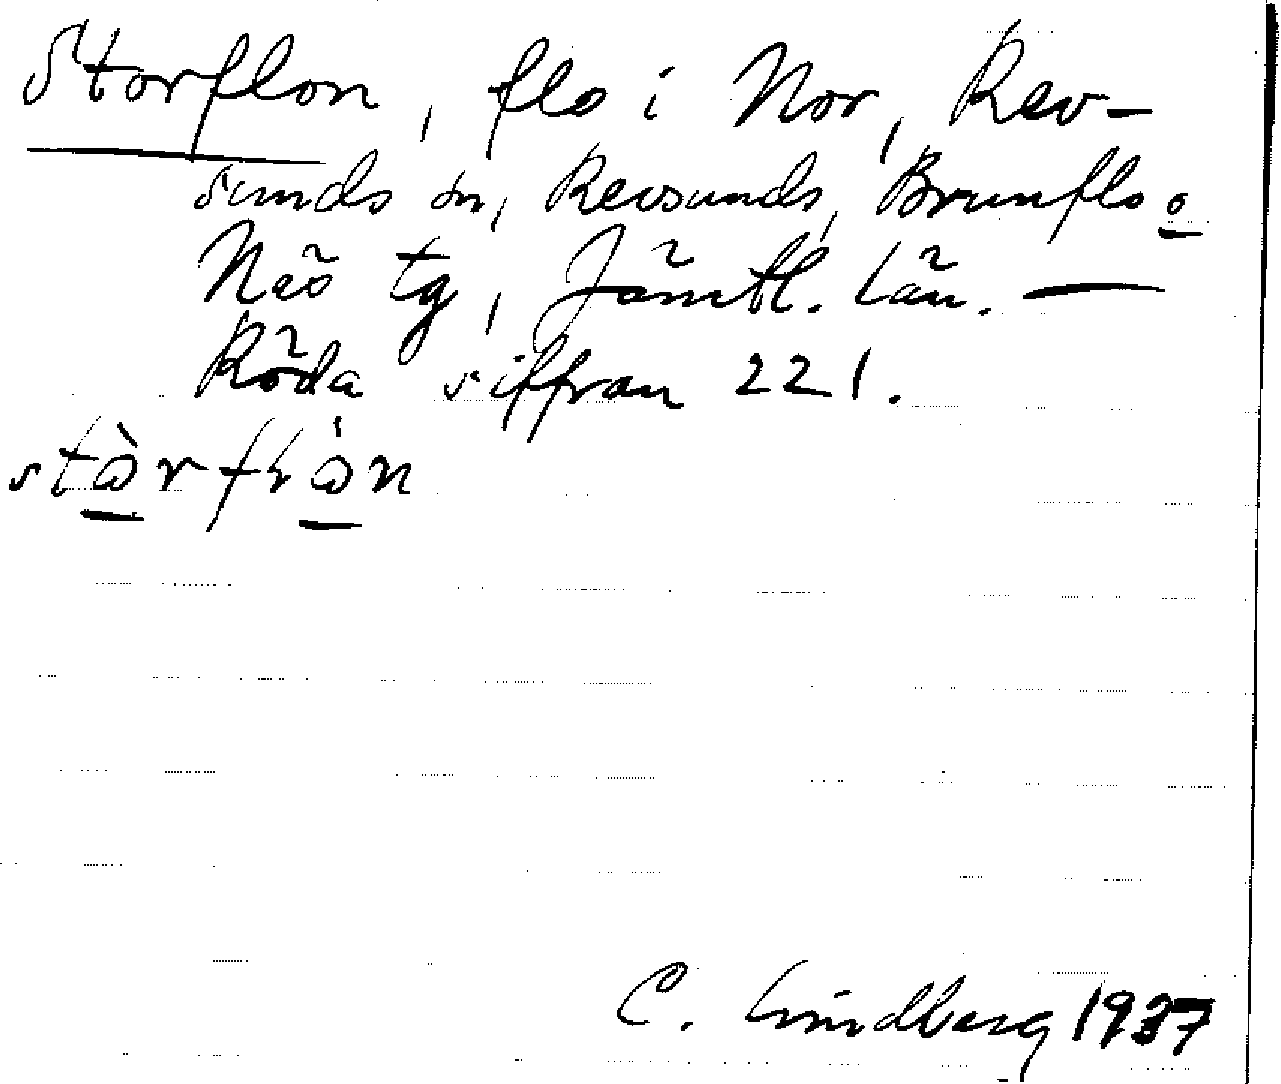 Storflon, flo i Nor, Rev-
sunds sn, Revsunds, Brunflo o
Näs tg, Jämtl. län. —
Röda siffran 221.
C. Lindberg 1937